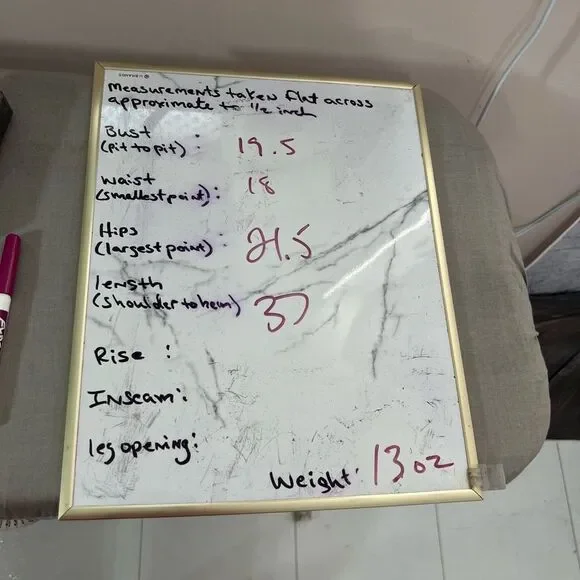 U BRANDS
Measurements taken flat across
approximate to 1/2 inch
Bust :
(pit to pit) : 19.5
waist
(smallest point) : 18
Hips :
(largest point) 21.5
length
(shoulder to hem) 37
Rise :
Inseam :
leg opening :
Weight : 13 oz